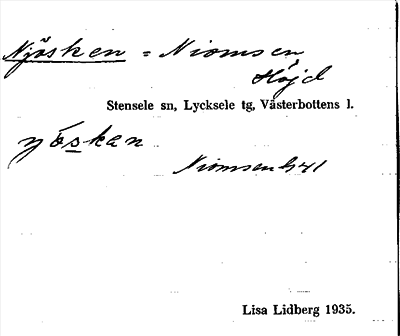 Njösken = Niomsen
Höjd
Stensele sn, Lycksele tg, Västerbottens l.
njöskan
Lisa Lidberg 1935.